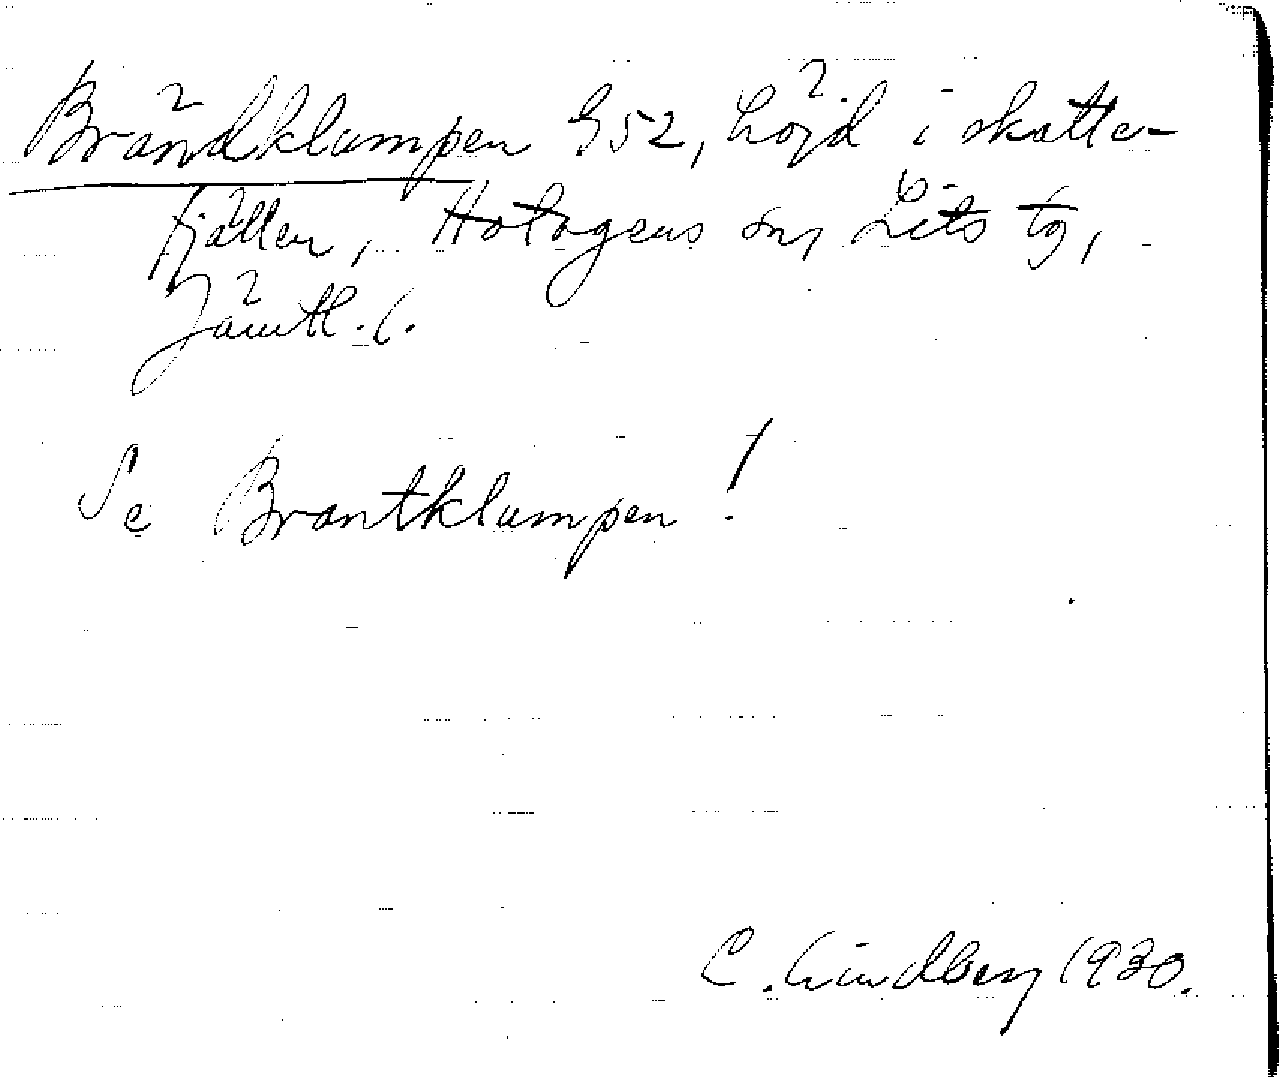 Brändklumpen 952, höjd i skatte-
fjällen, Hotagens sn, Lits tg,
Jämtl. l.
Se Brantklumpen!
C. Lindberg 1930.